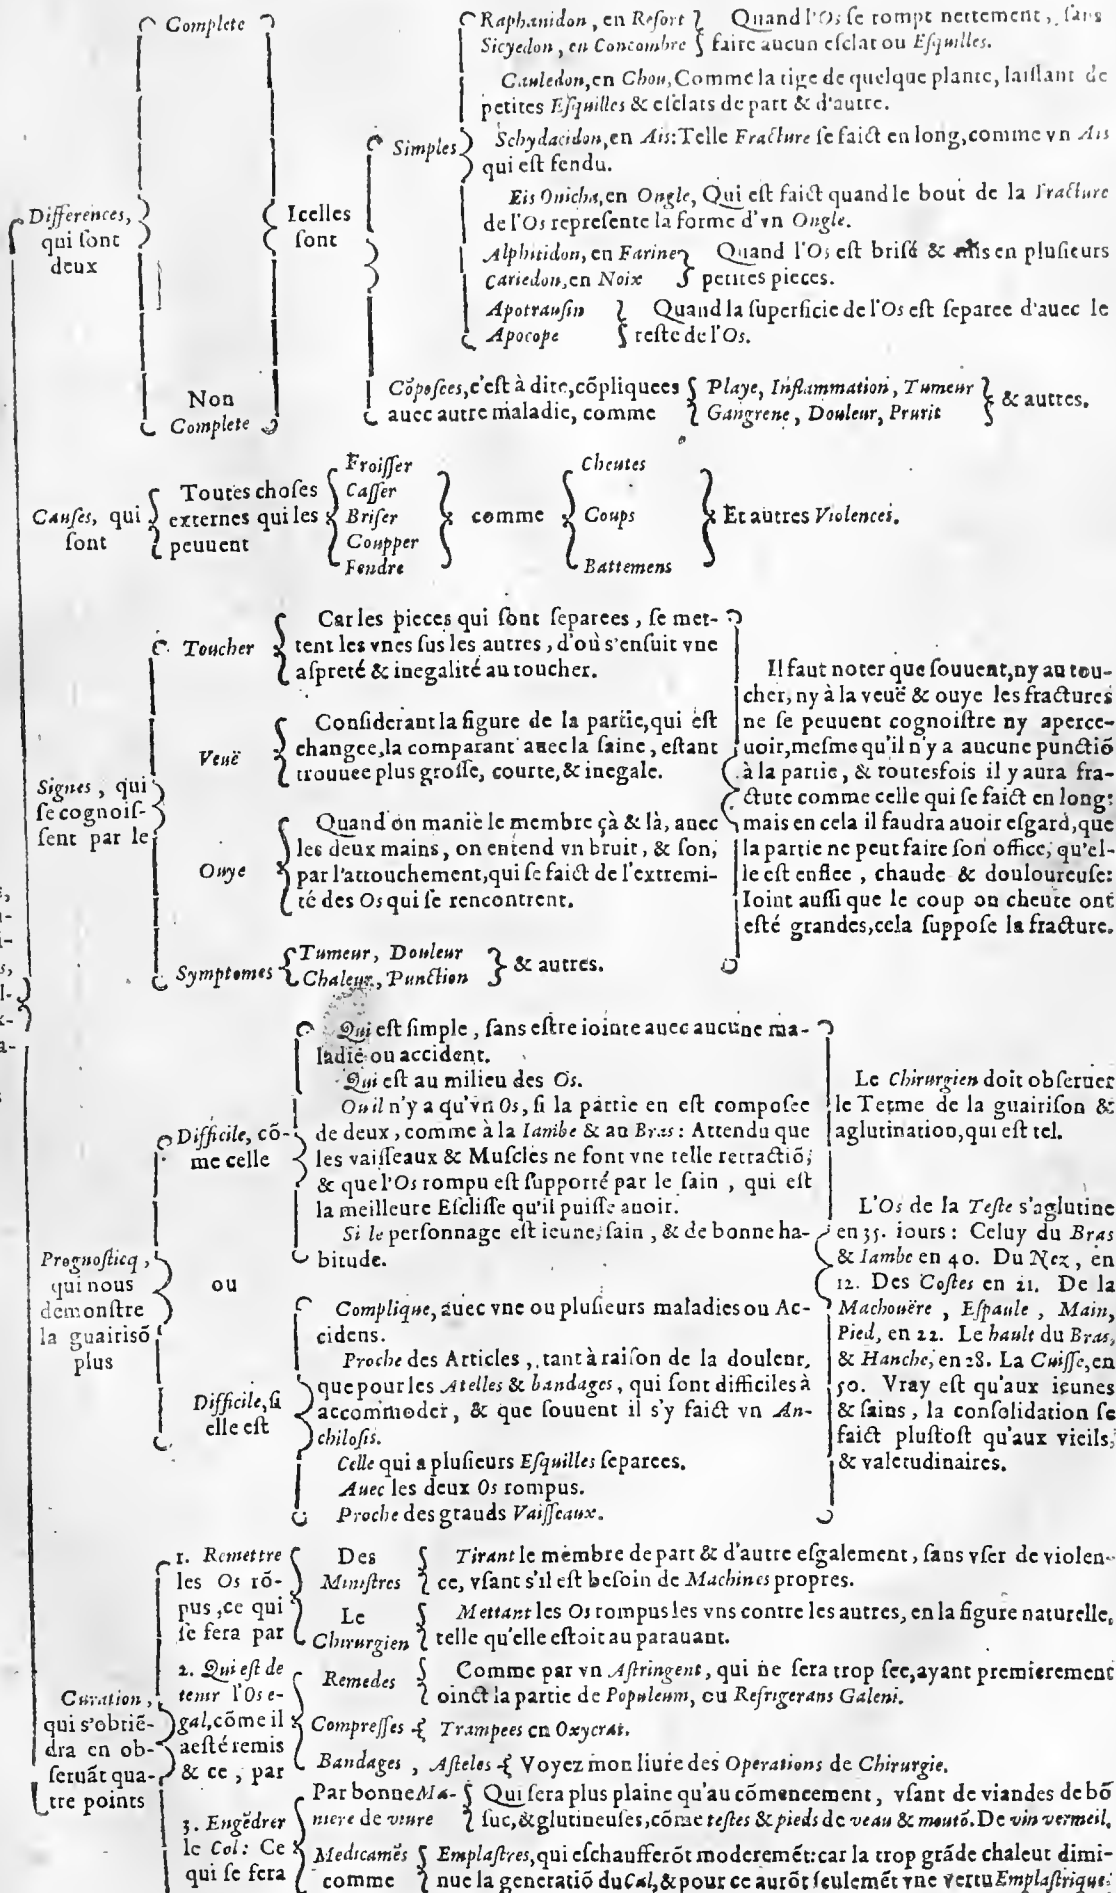 Differences,
qui ſont
deux
Complete
Non
Complete
Icelles
ſont
Simples
Raphanidon, en Refort
Sicyedon, en Concombre
Quand l'Os ſe rompt nettement, ſans
faire aucun eſclat ou Eſquilles.
Cauledon, en Chou, Comme la tige de quelque plante, laiſſant de
petites Eſquilles & eſclats de part & d'autre.
Schydacidon, en Ais: Telle Fracture ſe faict en long, comme vn Ais
qui eſt fendu.
Eis Onicha, en Ongle, Qui eſt faict quand le bout de la Fracture
de l'Os repreſente la forme d'vn Ongle.
Alphitidon, en Farine
Cariedon, en Noix
Quand l'Os eſt briſé & mis en pluſieurs
petites pieces.
Apotrauſin
Apocope
Quand la ſuperficie de l'Os eſt ſeparee d'auec le
reſte de l'Os.
Cõpoſees, c'eſt à dire, cõpliquees
auec autre maladie, comme
Playe, Inflammation, Tumeur
Gangrene, Douleur, Prurit
& autres.
Cauſes, qui
ſont
Toutes choſes
externes qui les
peuuent
Froiſſer
Caſſer
Briſer
Coupper
Fendre
comme
Cheutes
Coups
Battemens
Et autres Violences.
Signes, qui
ſe cognoiſ-
ſent par le
Toucher
Car les pieces qui ſont ſeparees, ſe met-
tent les vnes ſus les autres, d'où s'enſuit vne
aſpreté & inegalité au toucher.
Veuë
Conſiderant la figure de la partie, qui eſt
changee, la comparant auec la ſaine, eſtant
trouuee plus groſſe, courte, & inegale.
Ouye
Quand on manie le membre çà & là, auec
les deux mains, on entend vn bruit, & ſon,
par l'attouchement, qui ſe faict de l'extremi-
té des Os qui ſe rencontrent.
Symptomes
Tumeur, Douleur
Chaleur, Punction
& autres.
Il faut noter que ſouuent, ny au tou-
cher, ny à la veuë & ouye les fractures
ne ſe peuuent cognoiſtre ny aperce-
uoir, meſme qu'il n'y a aucune punctiõ
à la partie, & toutesfois il y aura fra-
cture comme celle qui ſe faict en long:
mais en cela il faudra auoir eſgard, que
la partie ne peut faire ſon office, qu'el-
le eſt enflee, chaude & douloureuſe:
Ioint auſſi que le coup ou cheute ont
eſté grandes, cela ſuppoſe la fracture.
Prognoſticq,
qui nous
demonſtre
la guairiſõ
plus
Difficile, cõ-
me celle
Qui eſt ſimple, ſans eſtre iointe auec aucune ma-
ladie ou accident.
Qui eſt au milieu des Os.
Ou il n'y a qu'vn Os, ſi la partie en eſt compoſee
de deux, comme à la Iambe & au Bras: Attendu que
les vaiſſeaux & Muſcles ne font vne telle retractiõ,
& que l'Os rompu eſt ſupporté par le ſain, qui eſt
la meilleure Eſcliſſe qu'il puiſſe auoir.
Si le perſonnage eſt ieune, ſain, & de bonne ha-
bitude.
ou
Difficile, ſi
elle eſt
Complique, auec vne ou pluſieurs maladies ou Ac-
cidens.
Proche des Articles, tant à raiſon de la douleur,
que pour les Atelles & bandages, qui ſont difficiles à
accommoder, & que ſouuent il s'y faict vn An-
chiloſis.
Celle qui a pluſieurs Eſquilles ſeparees.
Auec les deux Os rompus.
Proche des grands Vaiſſeaux.
Le Chirurgien doit obſeruer
le Terme de la guairiſon &
aglutination, qui eſt tel.
L'Os de la Teſte s'aglutine
en 35. iours: Celuy du Bras
& Iambe en 40. Du Nez, en
12. Des Coſtes en 21. De la
Machouëre, Eſpaule, Main,
Pied, en 22. Le hault du Bras,
& Hanche, en 28. La Cuiſſe, en
50. Vray eſt qu'aux ieunes
& ſains, la conſolidation ſe
faict pluſtoſt qu'aux vieils,
& valetudinaires.
Curation,
qui s'obtiẽ-
dra en ob-
ſeruãt qua-
tre points
1. Remettre
les Os rõ-
pus, ce qui
ſe fera par
Des
Miniſtres
Tirant le membre de part & d'autre eſgalement, ſans vſer de violen-
ce, vſant s'il eſt beſoin de Machines propres.
Le
Chirurgien
Mettant les Os rompus les vns contre les autres, en la figure naturelle,
telle qu'elle eſtoit au parauant.
2. Qui eſt de
tenir l'Os e-
gal, cõme il
a eſté remis
& ce, par
Remedes
Comme par vn Aſtringent, qui ne ſera trop ſec, ayant premierement
oinct la partie de Populeum, ou Refrigerans Galeni.
Compreſſes
Trampees en Oxycrat.
Bandages, Aſteles
Voyez mon liure des Operations de Chirurgie.
3. Engẽdrer
le Col: Ce
qui ſe fera
Par bonne Ma-
niere de viure
Qui ſera plus plaine qu'au cõmencement, vſant de viandes de bõ
ſuc, & glutineuſes, cõme teſtes & pieds de veau & moutõ. De vin vermeil.
Medicamẽs
comme
Emplaſtres, qui eſchaufferõt moderemẽt: car la trop grãde chaleur dimi-
nue la generatiõ du Cal, & pour ce aurõt ſeulemẽt vne vertu Emplaſtrique.